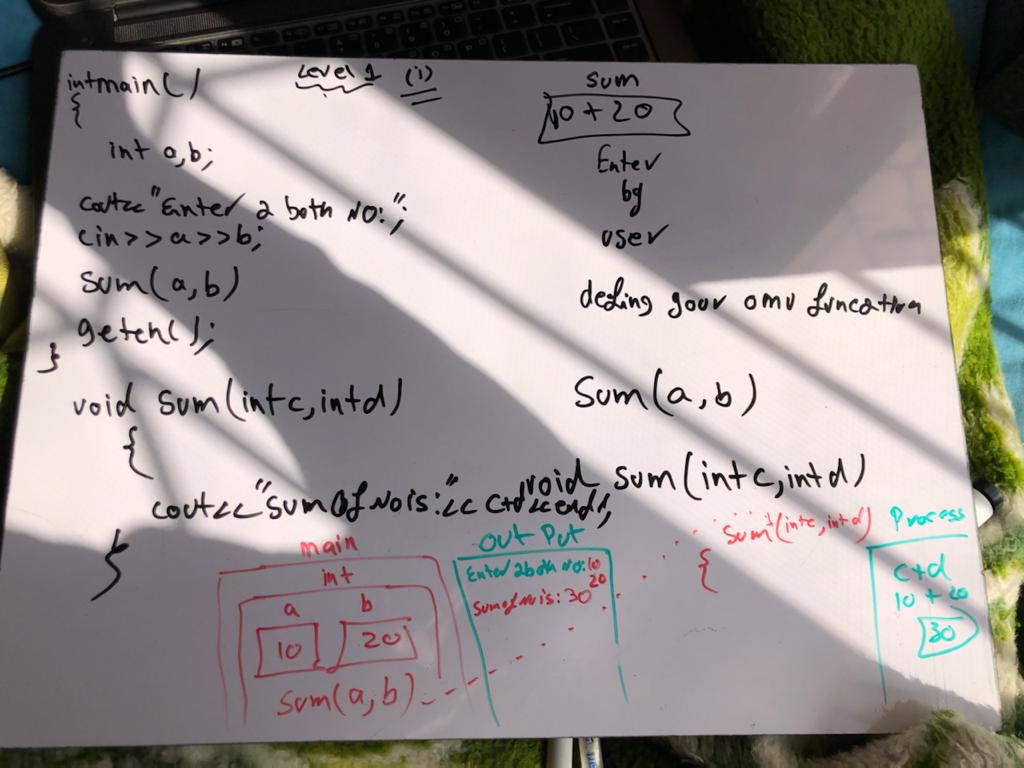 Level 1 (1)
intmain()
{
int a,b;
cout<<"Enter 2 both NO:";
cin>>a>>b;
sum(a,b)
getch();
}
void sum(int c, int d)
{
cout<<"sum of Nois:"<<c+d<<endl;
}
sum
10 + 20
Enter
by
user
sum(a,b)
void sum(int c, int d)
main
int
a b
10 20
sum(a,b)
out Put
Enter 2 both NO: 10
20
sum of Nois: 30
sum(int c, int d)
{
Process
c+d
10 + 20
30